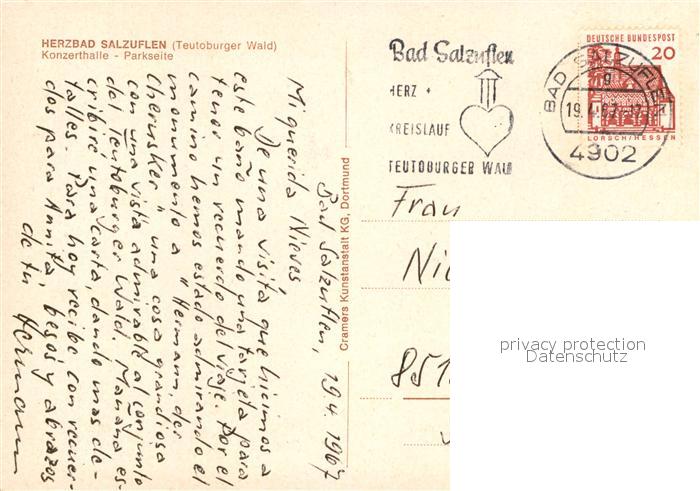 HERZBAD SALZUFLEN (Teutoburger Wald)
Konzerthalle - Parkseite
Bad Salzuflen, 19.4.1967
Mi querida Nieves
De una visita que hicimos a
este baño mando una tarjeta para
tener un recuerdo del viaje. Por el
camino hemos estado admirando el
monumento a "Hermann, der
Cherusker" una cosa grandiosa
con una vista admirable al conjunto
del Teutoburger Wald. Mañana es-
cribiré una carta, dando mas de-
talles. Para hoy recibe con recuer-
dos para Annita, besos y abrazos
de tu Hermann
Cramers Kunstanstalt KG, Dortmund
Bad Salzuflen
HERZ +
KREISLAUF
TEUTOBURGER WALD
BAD SALZUFLEN
g
19.4.67
4902
DEUTSCHE BUNDESPOST
20
LORSCH/HESSEN
Frau
privacy protection
Datenschutz